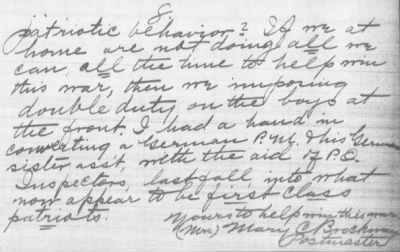 8
patriotic behavior? If we at
home are not doing all we
can, all the time to help win
this war, then we imposing
double duty on the boys at
the front. I had a hand in
converting a German P.M. & his German
sister ass't, with the aid of P.O.
Inspectors, last fall, into what
now appear to be first class
patriots.
Yours to help win this war
(Mrs) Mary C. Brockway
Postmaster